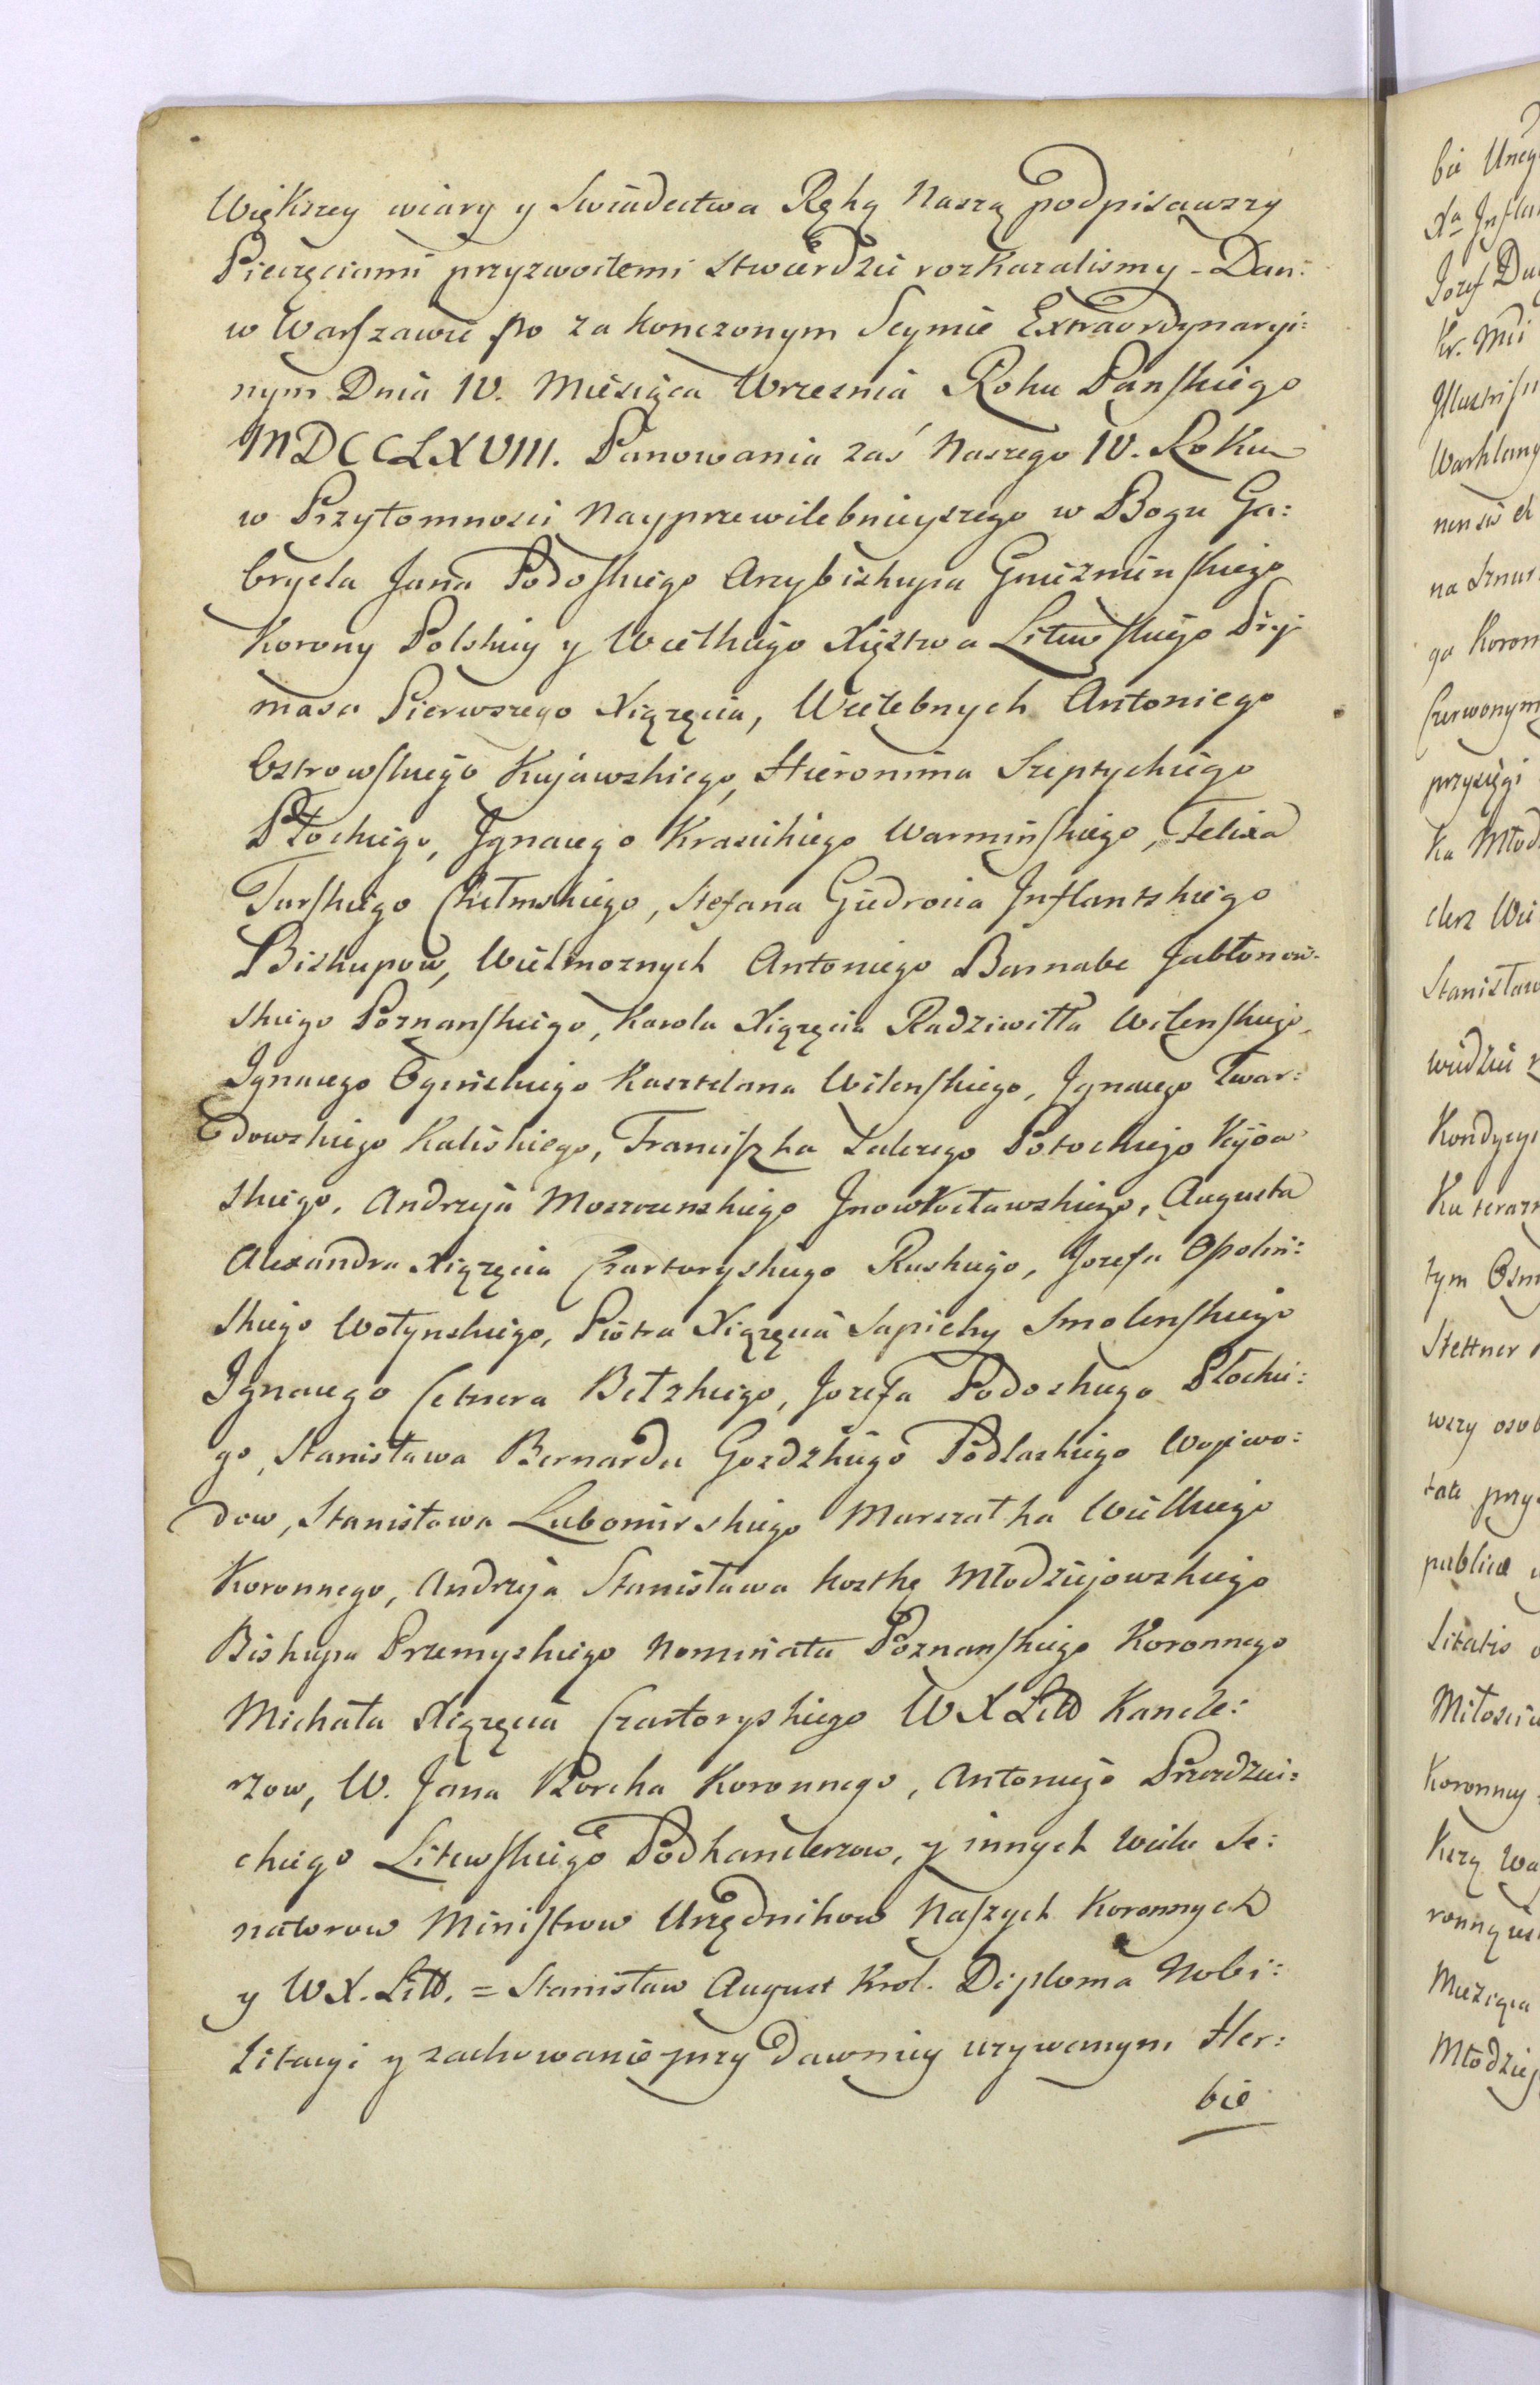 Większey wiary y Swiadectwa Ręką Naszą podpisawszy
Pieczęciami przyzwoitemi stwierdzić rozkazalismy - Dan:
w Warszawie po zakonczonym Seymie Extraordynaryi:
nym Dnia IV. Miesiąca Wrzesnia Roku Panskiego
MDCCLXVIII. Panowania zaś Naszego IV. Roku
w Przytomnosci Nayprzewielebnieyszego w Bogu Ga:
bryela Jana Podoskiego Arcybiskupa Gnieznienskiego
Korony Polskiey y Wielkiego Xięztwa Litewskiego Pry:
masa Pierwszego Xiązęcia, Wielebnych Antoniego
Ostrowskiego Kujawskiego, Hieronima Szeptyckiego
Płockiego, Jgnacego Krasickiego Warminskiego, Felixa
Turskiego Chełmskiego, Stefana Giedroicia Jnflantskiego
Biskupow, Wielmoznych Antoniego Barnabe Jabłonow-
skiego Poznanskiego, Karola Xiązęcia Radziwiłła Wilenskiego,
Jgnacego Oginskiego Kasztelana Wilenskiego, Jgnacego Twar:
dowskiego Kaliskiego, Franciszka Salezego Potockiego Kijow
skiego, Andrzeja Moszczenskiego Jnowłocławskiego, Augusta
Alexandra Xiązęcia Czartoryskiego Ruskiego, Jozefa Opolin:
skiego Wołynskiego, Piotra Xiązęcia Sapiehy Smolenskiego
Jgnacego Cetnera Bełzkiego, Jozefa Podoskiego Płockie:
go, Stanisława Bernarda Gozdzkiego Podlaskiego Wojewo:
dow, Stanisława Lubomirskiego Marszałka Wielkiego
Koronnego, Andrzeja Stanisława Kostkę Młodziejowskiego
Biskupa Przemyskiego Nominata Poznanskiego Koronnego
Michała Xiązęcia Czartoryskiego W X Litt Kancle:
rzow, W. Jana Borcha Koronnego, Antoniego Przezdzie:
ckiego Litewskiego Podkanclerzow, y innych wielu Se:
natorow Ministrow Urzędnikow Naszych Koronnych
y W X. Litt. = Stanisław August Krol. Diploma Nobi:
litacyi y zachowanie przy dawniey uzywanym Her:
bie